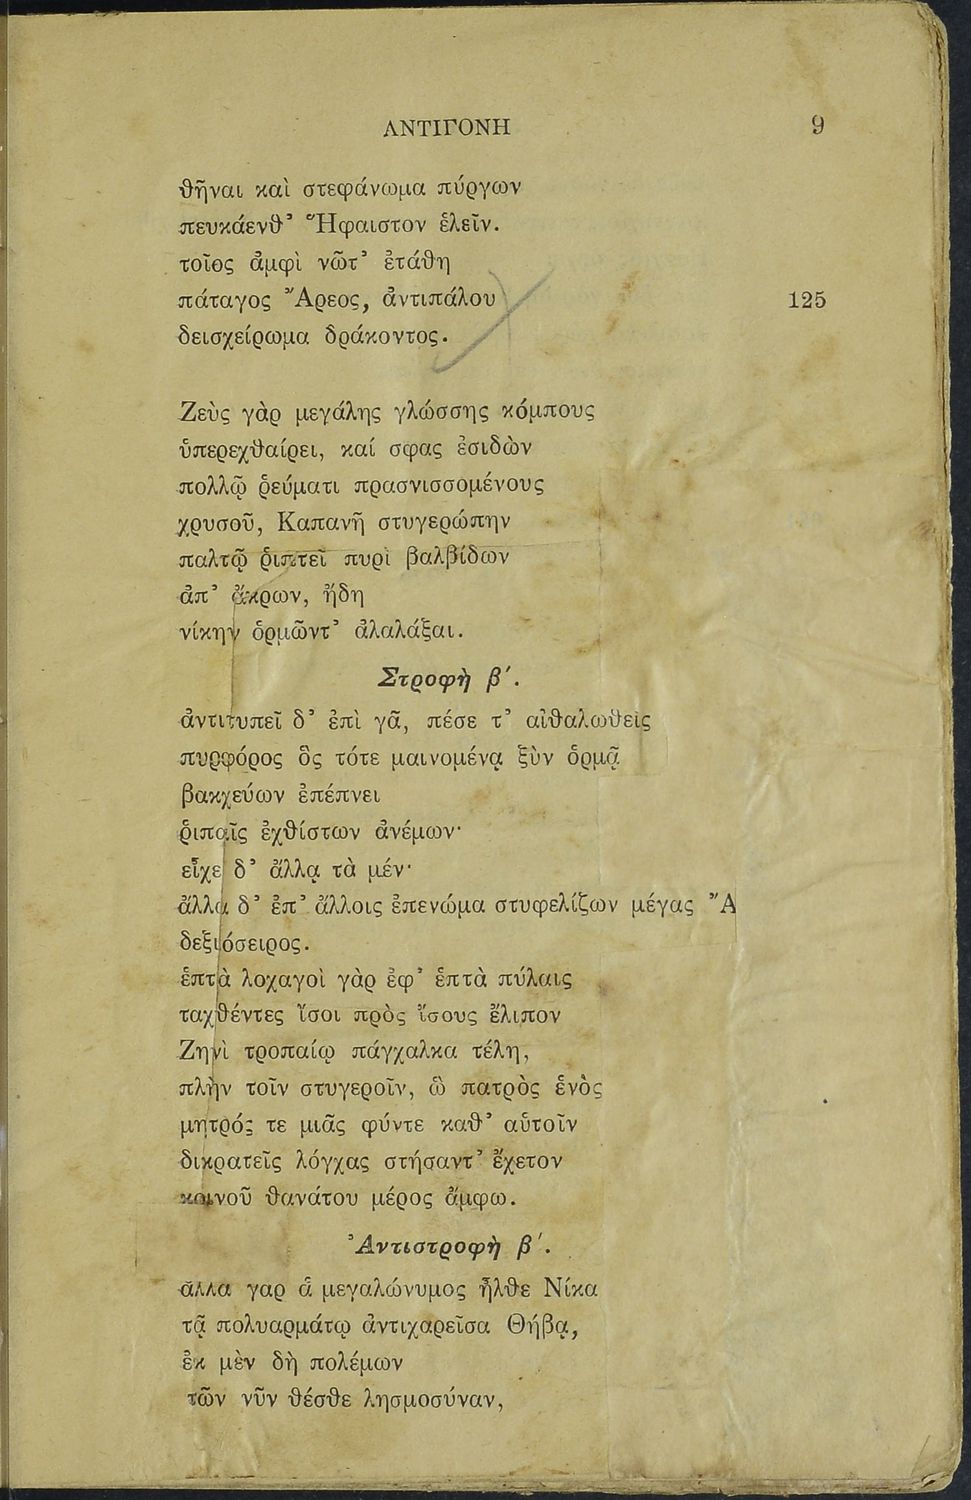 ΑΝΤΙΓΟΝΗ 9
θῆναι καὶ στεφάνωμα πύργων
πευκάενθ’ Ἥφαιστον ἑλεῖν.
τοῖος ἀμφὶ νῶτ’ ἐτάθη
πάταγος Ἄρεος, ἀντιπάλου 125
δεισχείρωμα δράκοντος.
Ζεὺς γὰρ μεγάλης γλώσσης κόμπους
ὑπερεχθαίρει, καί σφας ἐσιδὼν
πολλῷ ῥεύματι πρασνισσομένους
χρυσοῦ, Καπανῆ στυγερώπην
παλτῷ ῥιπτεῖ πυρὶ βαλβίδων
ἀπ’ ἄκρων, ἤδη
νίκην ὁρμῶντ’ ἀλαλάξαι.
Στροφὴ β΄.
ἀντιτυπεῖ δ’ ἐπὶ γᾶ, πέσε τ’ αἰθαλωθεὶς
πυρφόρος ὃς τότε μαινομένᾳ ξὺν ὁρμᾷ
βακχεύων ἐπέπνει
ῥιπαῖς ἐχθίστων ἀνέμων·
εἶχε δ’ ἄλλᾳ τὰ μέν·
ἄλλα δ’ ἐπ’ ἄλλοις ἐπενώμα στυφελίζων μέγας Ἄ
δεξιόσειρος.
ἑπτὰ λοχαγοὶ γὰρ ἐφ’ ἑπτὰ πύλαις
ταχθέντες ἴσοι πρὸς ἴσους ἔλιπον
Ζηνὶ τροπαίῳ πάγχαλκα τέλη,
πλὴν τοῖν στυγεροῖν, ὣ πατρὸς ἑνὸς
μητρός τε μιᾶς φύντε καθ’ αὑτοῖν
δικρατεῖς λόγχας στήσαντ’ ἔχετον
κοινοῦ θανάτου μέρος ἄμφω.
Ἀντιστροφὴ β΄.
ἀλλα γαρ ἁ μεγαλώνυμος ἦλθε Νίκα
τᾷ πολυαρμάτῳ ἀντιχαρεῖσα Θήβᾳ,
ἐκ μὲν δὴ πολέμων
τῶν νῦν θέσθε λησμοσύναν,